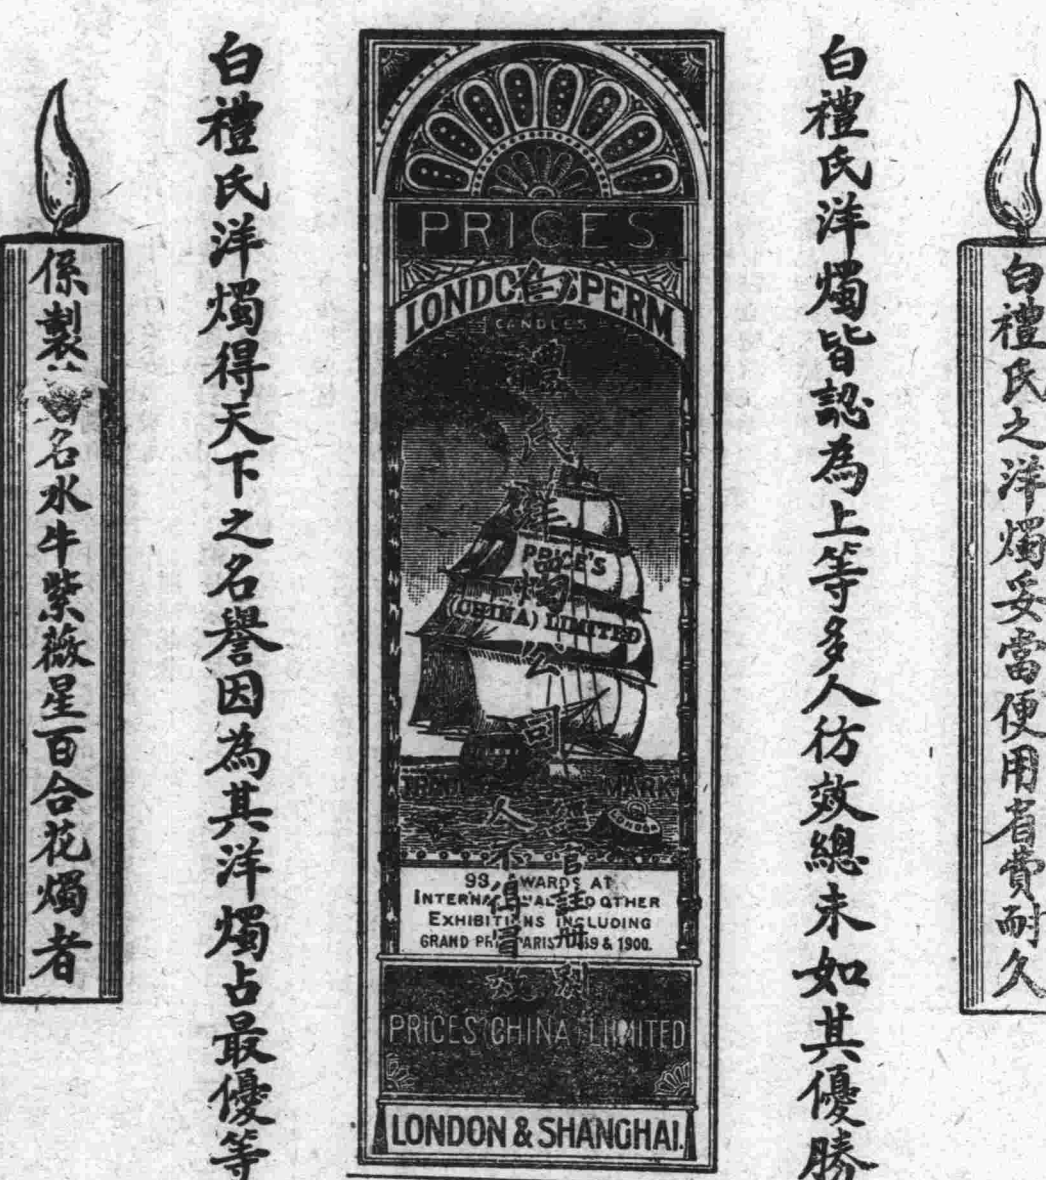 白禮氏之洋燭妥當便用省費耐久
白禮氏洋燭皆認為上等多人彷效總未如其優勝
PRICES
LONDON SPERM
CANDLES
白禮氏洋燭公司
PRICE'S
(CHINA) LIMITED
TRADE MARK
LONDON
經官註册別
人不得冒效
93 AWARDS AT
INTERNATIONAL AND OTHER
EXHIBITIONS INCLUDING
GRAND PRIX PARIS 1889 & 1900.
PRICES CHINA LIMITED
LONDON & SHANGHAI.
白禮氏洋燭得天下之名譽因為其洋燭占最優等
係製名水牛紫薇星百合花燭者